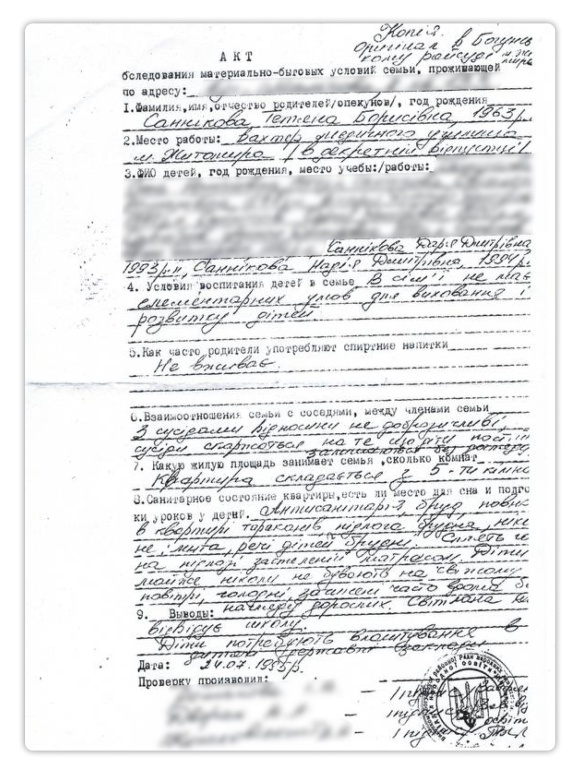 Копія.
оригінал в Богунсь
кому райсуді м. Жи
АКТ
бследования материально-бытовых условий семьи, проживающей
по адресу:
1.Фамилия,имя,отчество родителей/опекунов/, год рождения
Саннікова Тетяна Борисівна 1963р.
2.Место работы: Вахтер медичного училища
м. Житомира /в декретній відпустці/
3.ФИО детей, год рождения, место учебы:/работы:
Саннікова Дар'я Дмитрівна
1993р.н, Саннікова Марія Дмитрівна, 1994р.
4. Условия воспитания детей в семье В сім'ї не має
елементарних умов для виховання і
розвитку дітей
5.Как часто родители употребляют спиртние напитки
Не вживає.
6.Взаимоотношения семьи с соседями, между членами семьи
З сусідами відносини не доброзичливі,
сусіди скаржаться на те що діти
залишаються без
7. Какую жилую площадь занимает семья ,сколько комнат
Квартира складається з 5-ти кімна
8.Санитарное состояние квартиры,есть ли место для сна и подго
ки уроков у детей. Антисанітарія бруд повно
в квартирі тараканів підлога брудна,
не мита, речі дітей брудні. Сплять
на підлозі застеленій матрасом. Діти
майже ніколи не бувають на свіжому
повітрі, голодні, часто
9. Выводы: нагляду дорослих. Світлана не
відвідує школу.
Діти потребують влаштування в
дитячі державні заклади
Дата: 24.07.
Проверку производил: